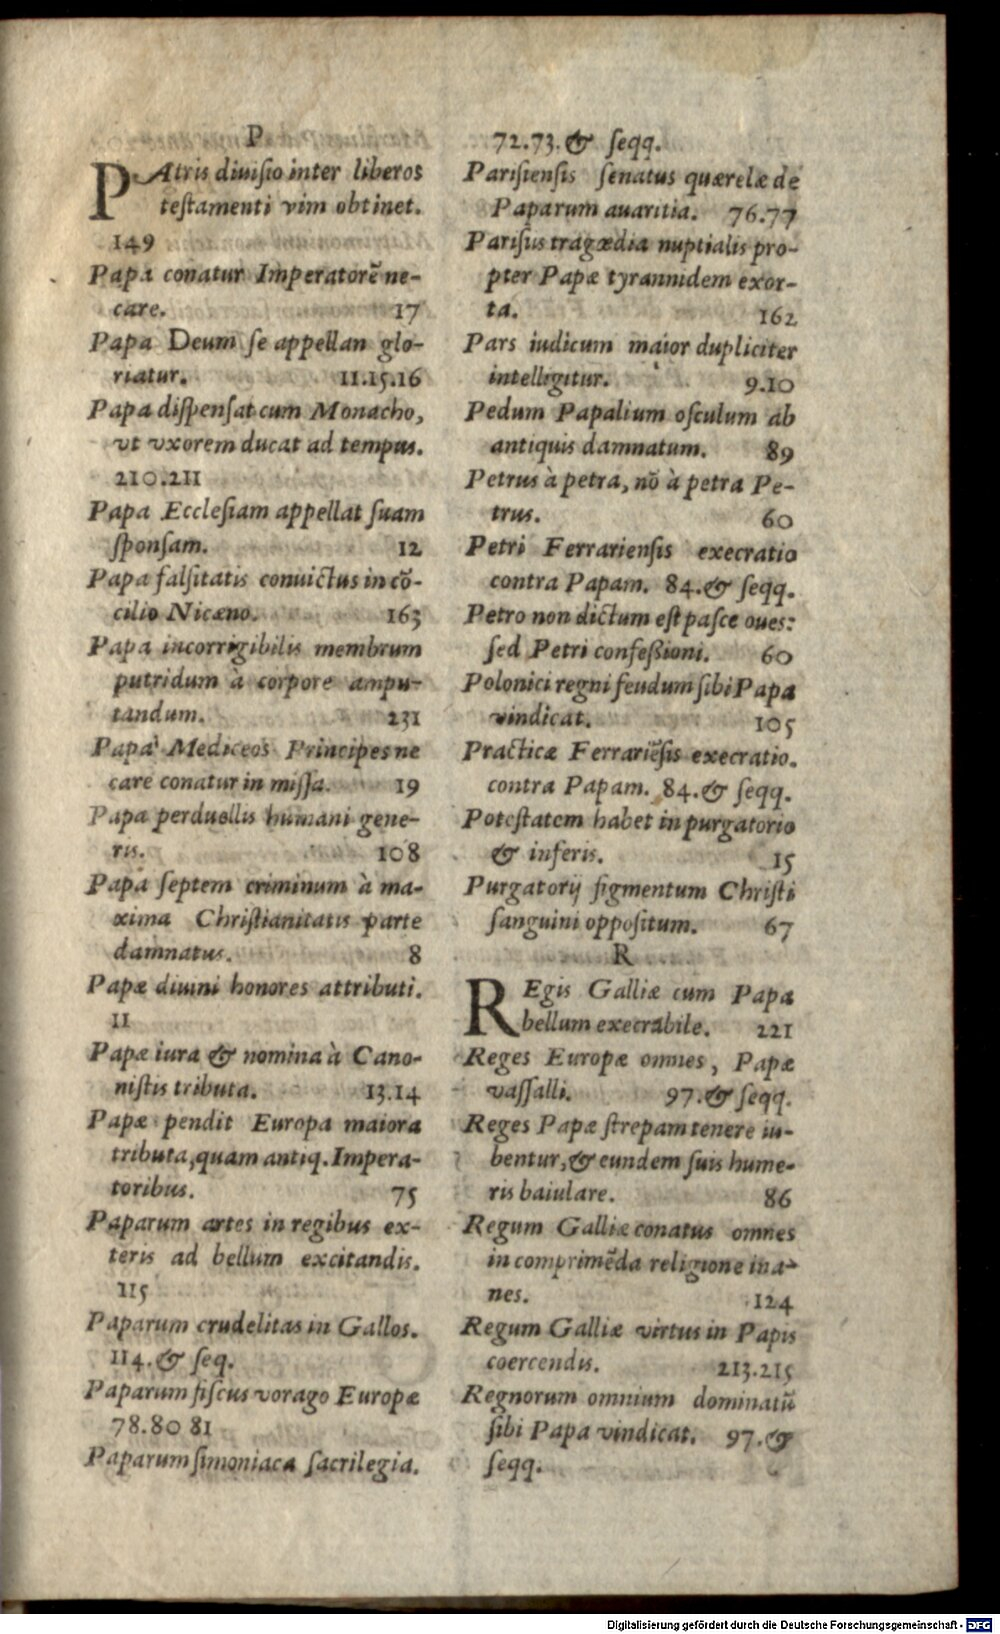 P
PAtris diuiſio inter liberos
teſtamenti vim obtinet.
149
Papa conatur Imperatorē ne-
care. 17
Papa Deum ſe appellari glo-
riatur. 11.15.16
Papa diſpenſat cum Monacho,
vt vxorem ducat ad tempus.
210.211
Papa Eccleſiam appellat ſuam
ſponſam. 12
Papa falſitatis conuictus in cō-
cilio Nicæno. 163
Papa incorrigibilis membrum
putridum à corpore ampu-
tandum. 231
Papa Mediceos Principes ne
care conatur in miſſa. 19
Papa perduellis humani gene-
ris. 108
Papa ſeptem criminum à ma-
xima Chriſtianitatis parte
damnatus. 8
Papæ diuini honores attributi.
11
Papæ iura & nomina à Cano-
niſtis tributa. 13.14
Papæ pendit Europa maiora
tributa, quam antiq. Impera-
toribus. 75
Paparum artes in regibus ex-
teris ad bellum excitandis.
115
Paparum crudelitas in Gallos.
114. & ſeq.
Paparum fiſcus vorago Europæ
78.80 81
Paparum ſimoniaca ſacrilegia.
72.73. & ſeqq.
Pariſienſis ſenatus quærelæ de
Paparum auaritia. 76.77
Pariſus tragædia nuptialis pro-
pter Papæ tyrannidem exor-
ta. 162
Pars iudicum maior dupliciter
intelligitur. 9.10
Pedum Papalium oſculum ab
antiquis damnatum. 89
Petrus à petra, nō à petra Pe-
trus. 60
Petri Ferrarienſis execratio
contra Papam. 84. & ſeqq.
Petro non dictum eſt paſce oues:
ſed Petri confeßioni. 60
Polonici regni feudum ſibi Papa
vindicat. 105
Practicæ Ferrariēſis execratio.
contra Papam. 84. & ſeqq.
Poteſtatem habet in purgatorio
& inferis. 15
Purgatorij figmentum Chriſti
ſanguini oppoſitum. 67
R
REgis Galliæ cum Papa
bellum execrabile. 221
Reges Europæ omnes, Papæ
vaſſalli. 97. & ſeqq.
Reges Papæ ſtrepam tenere iu-
bentur, & eundem ſuis hume-
ris baiulare. 86
Regum Galliæ conatus omnes
in comprimēda religione ina-
nes. 124
Regum Galliæ virtus in Papis
coercendis. 213.215
Regnorum omnium dominatū
ſibi Papa vindicat. 97. &
ſeqq.
Digitalisierung gefördert durch die Deutsche Forschungsgemeinschaft - DFG